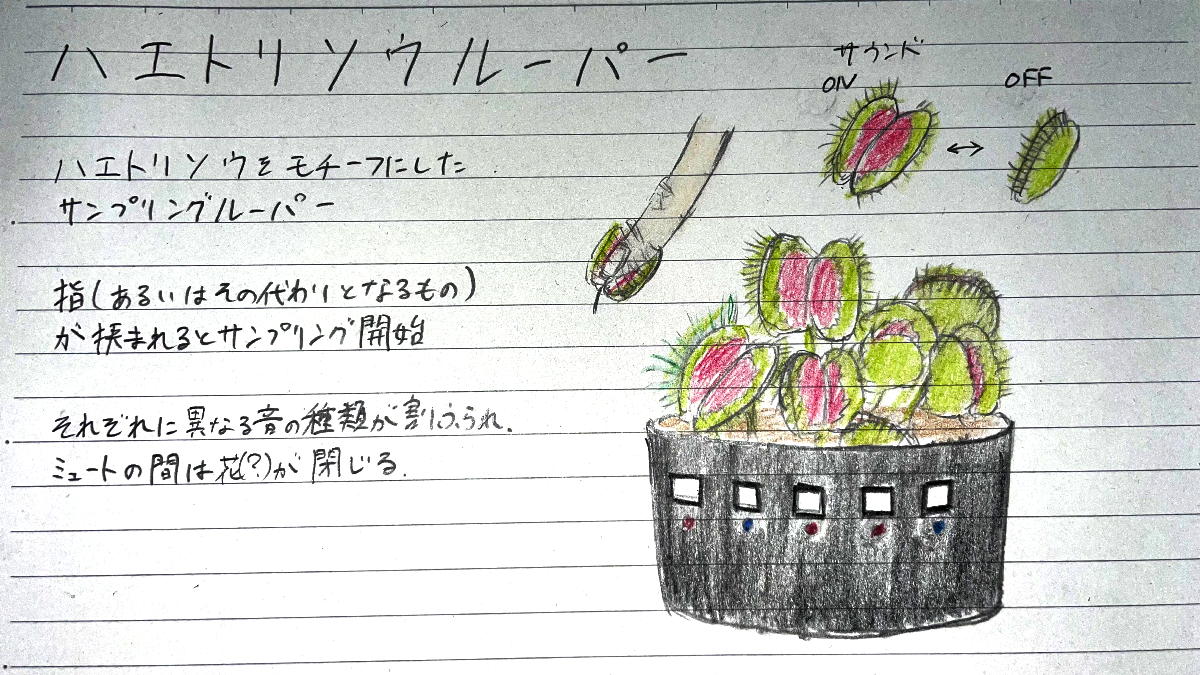 ハエトリソウルーパー
サウンド
ON
OFF
ハエトリソウをモチーフにした
サンプリングルーパー
指(あるいはその代わりとなるもの)
が挟まれるとサンプリング開始
それぞれに異なる音の種類が割りふられ.
ミュートの間は花(?)が閉じる.